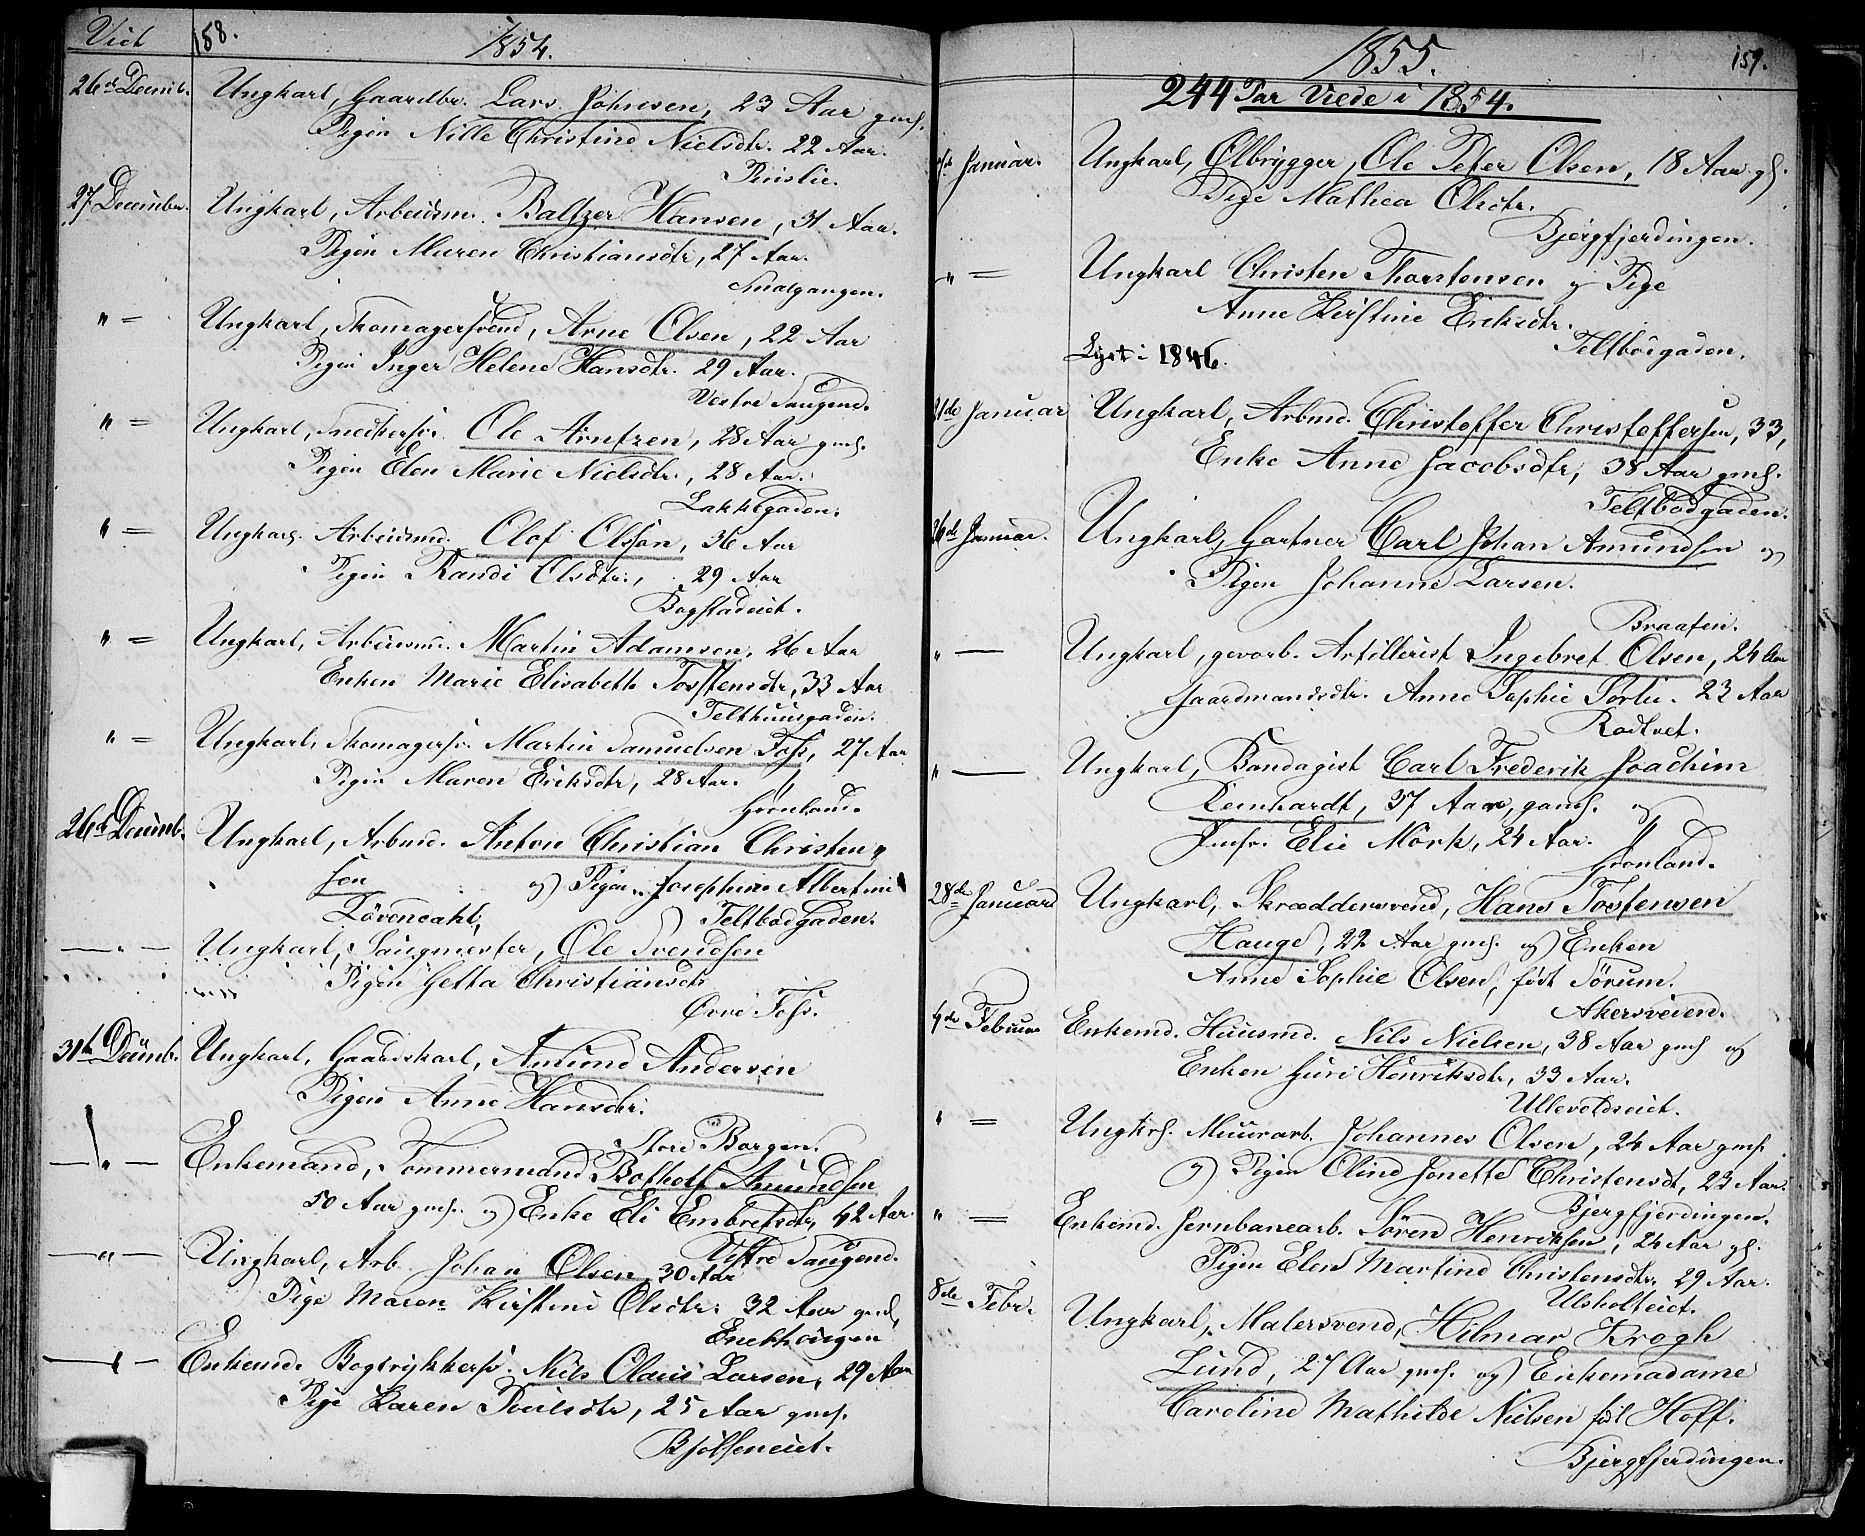 Viet
158.
1854.
26de Decmb. Ungkarl, Gaardbr. Lars Johnsen, 23 Aar gml.
Pigen Nille Christine Nielsdtr. 22 Aar.
27 December. Ungkarl, Arbeidsm. Baltzer Hansen, 31 Aar.
Pigen Maren Christiansdtr, 27 Aar.
Smalgangen.
" = Ungkarl, Skomagersvend, Arne Olsen, 22 Aar
Pigen Inger Helene Hansdtr. 29 Aar.
Vestre Saugend.
" = Ungkarl, Snedkersv. Ole Arntzen, 28 Aar gml.
Pigen Elen Marie Nielsdtr., 28 Aar.
Lakkegaden.
" = Ungkarl. Arbeidsmd. Olof Olsson, 36 Aar
Pigen Randi Olsdtr., 29 Aar
Bogstadeiet.
" = Ungkarl, Arbeidsmd. Martin Adamsen, 26 Aar
Enken Marie Elisabeth Tostensdtr, 33 Aar
Telthuusgaden.
" = Ungkarl, Skomagersv. Martin Samuelsen Foss, 27 Aar
Pigen Maren Eriksdtr, 28 Aar.
Grønland.
26de Decmb. Ungkarl, Arbmd. Anton Christian Christen,,
sen og Pigen Josephine Albertine
Lövendahl, Teltbodgaden.
— " — Ungkarl, Saugmester, Ole Svendsen
Pigen Getta Christiansdtr
Övre Foss.
31te Decmb. Ungkarl, Gaardskarl, Amund Andersen
Pigen Anne Hansdtr.
Store Borgen.
— " — Enkemand, Tømmermand Botholf Amundsen
50 Aar gml. og Enke Eli Embretsdtr, 42 Aar.
Vestre Saugend.
— " — Ungkarl, Arb. Johan Olsen, 30 Aar
Pige Maren Kirstine Olsdtr. 32 Aar gml,
Enerhougen
— " — Enkemd. Bogtrykkersv. Nils Olaus Larsen, 29 Aar
Pige Karen Poulsdtr, 25 Aar gml.
Bjølseneiet.
1855.
159.
244 Par Viede i 1854.
Januar. Ungkarl, Ølbrygger, Ole Peter Olsen, 18 Aar gl.
Pige Mathea Olsdtr.
Bjergfjerdingen.
" = Ungkarl Christen Thorstensen og Pige
Anne Kirstine Eriksdtr.
Teltbodgaden.
Lyst i 1846.
21de Januar Ungkarl, Arbmd. Christoffer Christoffersen, 33,
Enke Anne Jacobsdtr, 38 Aar gml.
Teltbodgaden.
26de Januar. Ungkarl, Gartner Carl Johan Amundsen og
Pigen Johanne Larsen.
Braaten.
" — Ungkarl, gevorb. Artillerist Ingebret Olsen, 24 Aar
Gaardmandsdtr. Anne Sophie Sorlie. 23 Aar
Rodtvet.
" — Ungkarl, Bandagist Carl Frederik Joachim
Reinhardt, 37 Aar, gaml. og
Jmfr. Elie Mörk, 24 Aar.
Grønland.
28de Januar Ungkarl, Skræddersvend, Hans Tostensen
Hauge, 22 Aar gml. og Enken
Anne Sophie Olsen, født Sörum.
Akersveiend.
4de Februar Enkemd. Huusmd. Nils Nielsen, 38 Aar gml og
Enken Guri Henriksdtr, 33 Aar.
Ullevoldseiet.
" = Ungkrl. Muurarb. Johannes Olsen, 24 Aar gml.
og Pigen Oline Jonette Christensdt, 23 Aar.
Bjergfjerdingen.
" = Enkemd. Jernbanearb. Søren Henriksen, 24 Aar gl.
Pigen Elen Martine Christensdtr. 29 Aar.
Ulsholteiet.
8de Febr. Ungkarl, Malersvend, Hilmar Krogh
Lund, 27 Aar gml. og Enkemadame
Caroline Mathilde Nielsen født Hoff.
Bjergfjerdingen.